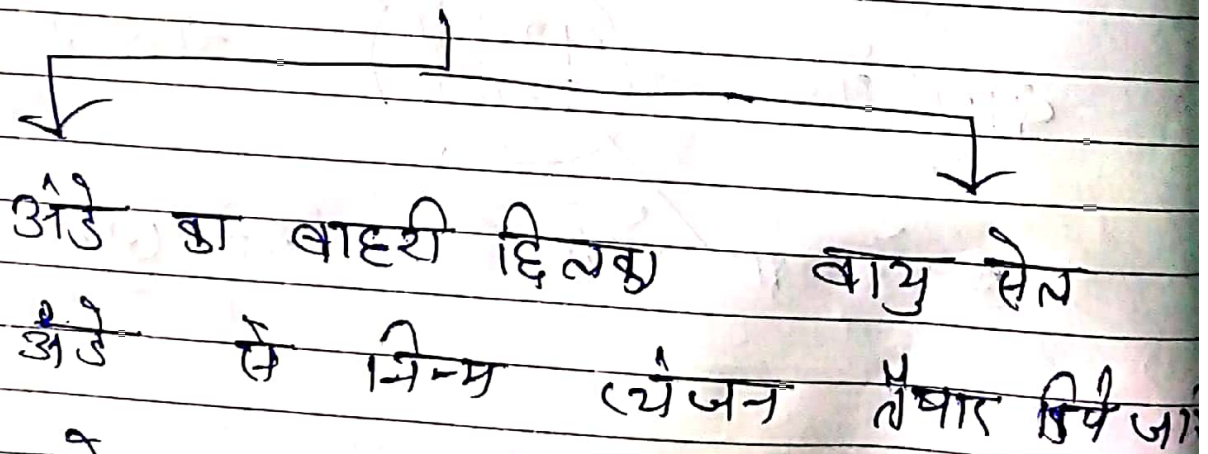 अंडे का बाहरी छिलका वायु सेल
अंडे से निम्न व्यंजन तैयार किये जा